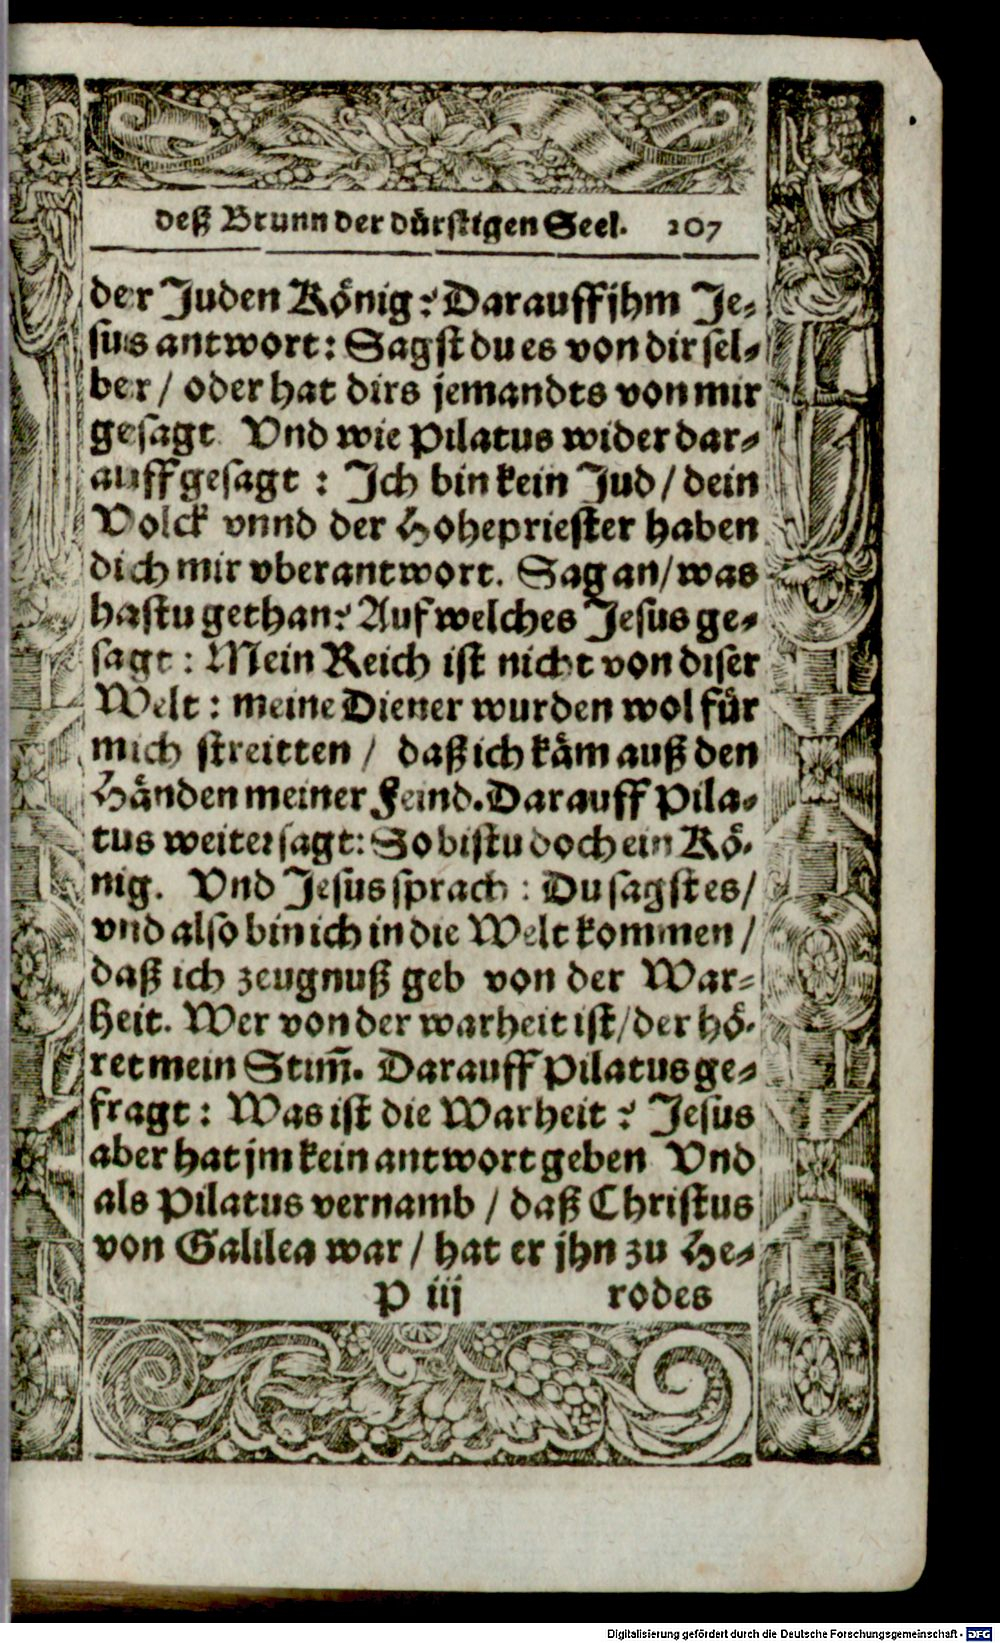 deß Brunn der dürstigen Seel. 207
der Juden König? Darauff jhm Je-
sus antwort: Sagst du es von dir sel-
ber / oder hat dirs jemandts von mir
gesagt Vnd wie Pilatus wider dar-
auff gesagt : Ich bin kein Jud / dein
Volck vnnd der Hohepriester haben
dich mir vberantwort. Sag an / was
hastu gethan? Auf welches Jesus ge-
sagt : Mein Reich ist nicht von diser
Welt : meine Diener wurden wol für
mich streitten / daß ich käm auß den
Händen meiner Feind. Darauff Pila-
tus weiter sagt: So bistu doch ein Kö-
nig. Vnd Jesus sprach : Du sagst es /
vnd also bin ich in die Welt kommen /
daß ich zeugnuß geb von der War-
heit. Wer von der warheit ist / der hö-
ret mein Stim̃. Darauff Pilatus ge-
fragt : Was ist die Warheit ? Jesus
aber hat jm kein antwort geben Vnd
als Pilatus vernamb / daß Christus
von Galilea war / hat er jhn zu He-
P iij rodes
Digitalisierung gefördert durch die Deutsche Forschungsgemeinschaft - DFG